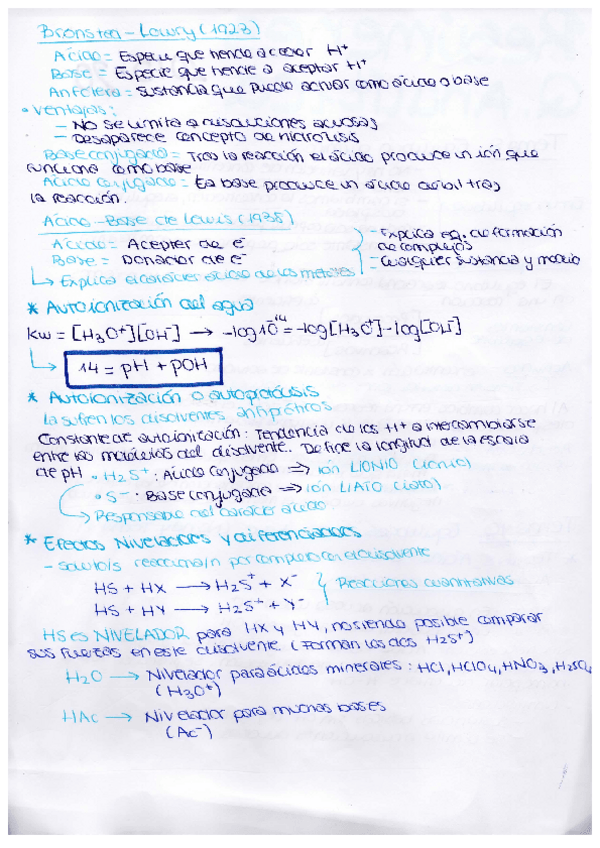 Bronsted-Lowry (1923)
Ácido = Especie que tiende a ceder H⁺
Base = Especie que tiende a aceptar H⁺
Anfótera = Sustancia que puede actuar como ácido o base
• Ventajas:
- No se limita a disoluciones acuosas
- Desaparece concepto de hidrólisis
Base conjugada = Tras la reacción el ácido produce un ión que
funciona como base
Ácido conjugado = La base produce un ácido débil tras
la reacción.
Ácido-Base de Lewis (1938)
Ácido = Aceptor de e⁻
Base = Donador de e⁻
- Explica eq. de formación
de complejos
- Cualquier sustancia y medio
↳ Explica el carácter ácido de los metales
* Autoionización del agua
Kw = [H₃O⁺][OH⁻] → -log10⁻¹⁴ = -log[H₃O⁺]-log[OH⁻]
↳ 14 = pH + pOH
* Autoionización o autoprotólisis
La sufren los disolventes anfipróticos
Constante de autoionización: Tendencia de los H⁺ a intercambiarse
entre las moléculas del disolvente. Define la longitud de la escala
de pH • H₂S⁺: Ácido conjugado ⇒ ión LIONIO (lionio)
• S⁻: Base conjugada ⇒ ión LIATO (liato)
↳ Responsable del carácter ácido
* Efectos Niveladores y diferenciadores
- Soluto/s reacciona/n por completo con el disolvente
HS + HX → H₂S⁺ + X⁻
HS + HY → H₂S⁺ + Y⁻
Reacciones cuantitativas
HS es NIVELADOR para HX y HY, no siendo posible comparar
sus fuerzas en este disolvente (Forman los dos H₂S⁺)
H₂O → Nivelador para ácidos minerales: HCl, HClO₄, HNO₃, H₂SO₄
(H₃O⁺)
HAc → Nivelador para muchas bases
(Ac⁻)